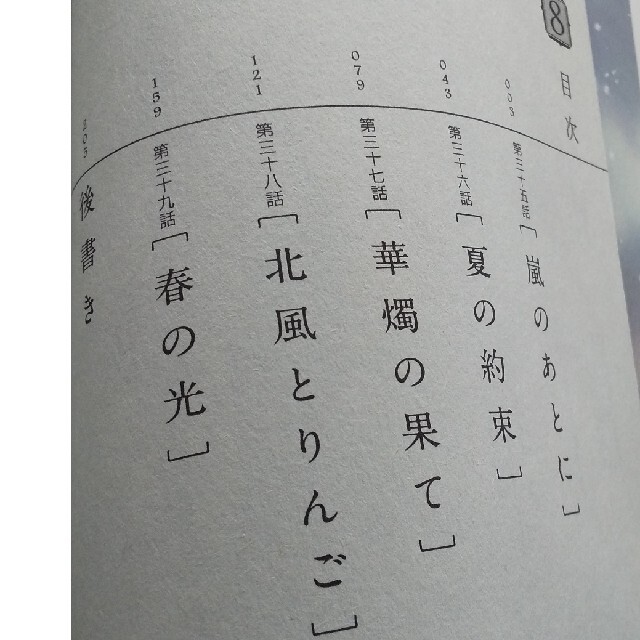 8
目次
003
第三十五話[嵐のあとに]
043
第三十六話[夏の約束]
079
第三十七話[華燭の果て]
121
第三十八話[北風とりんご]
159
第三十九話[春の光]
205
後書き